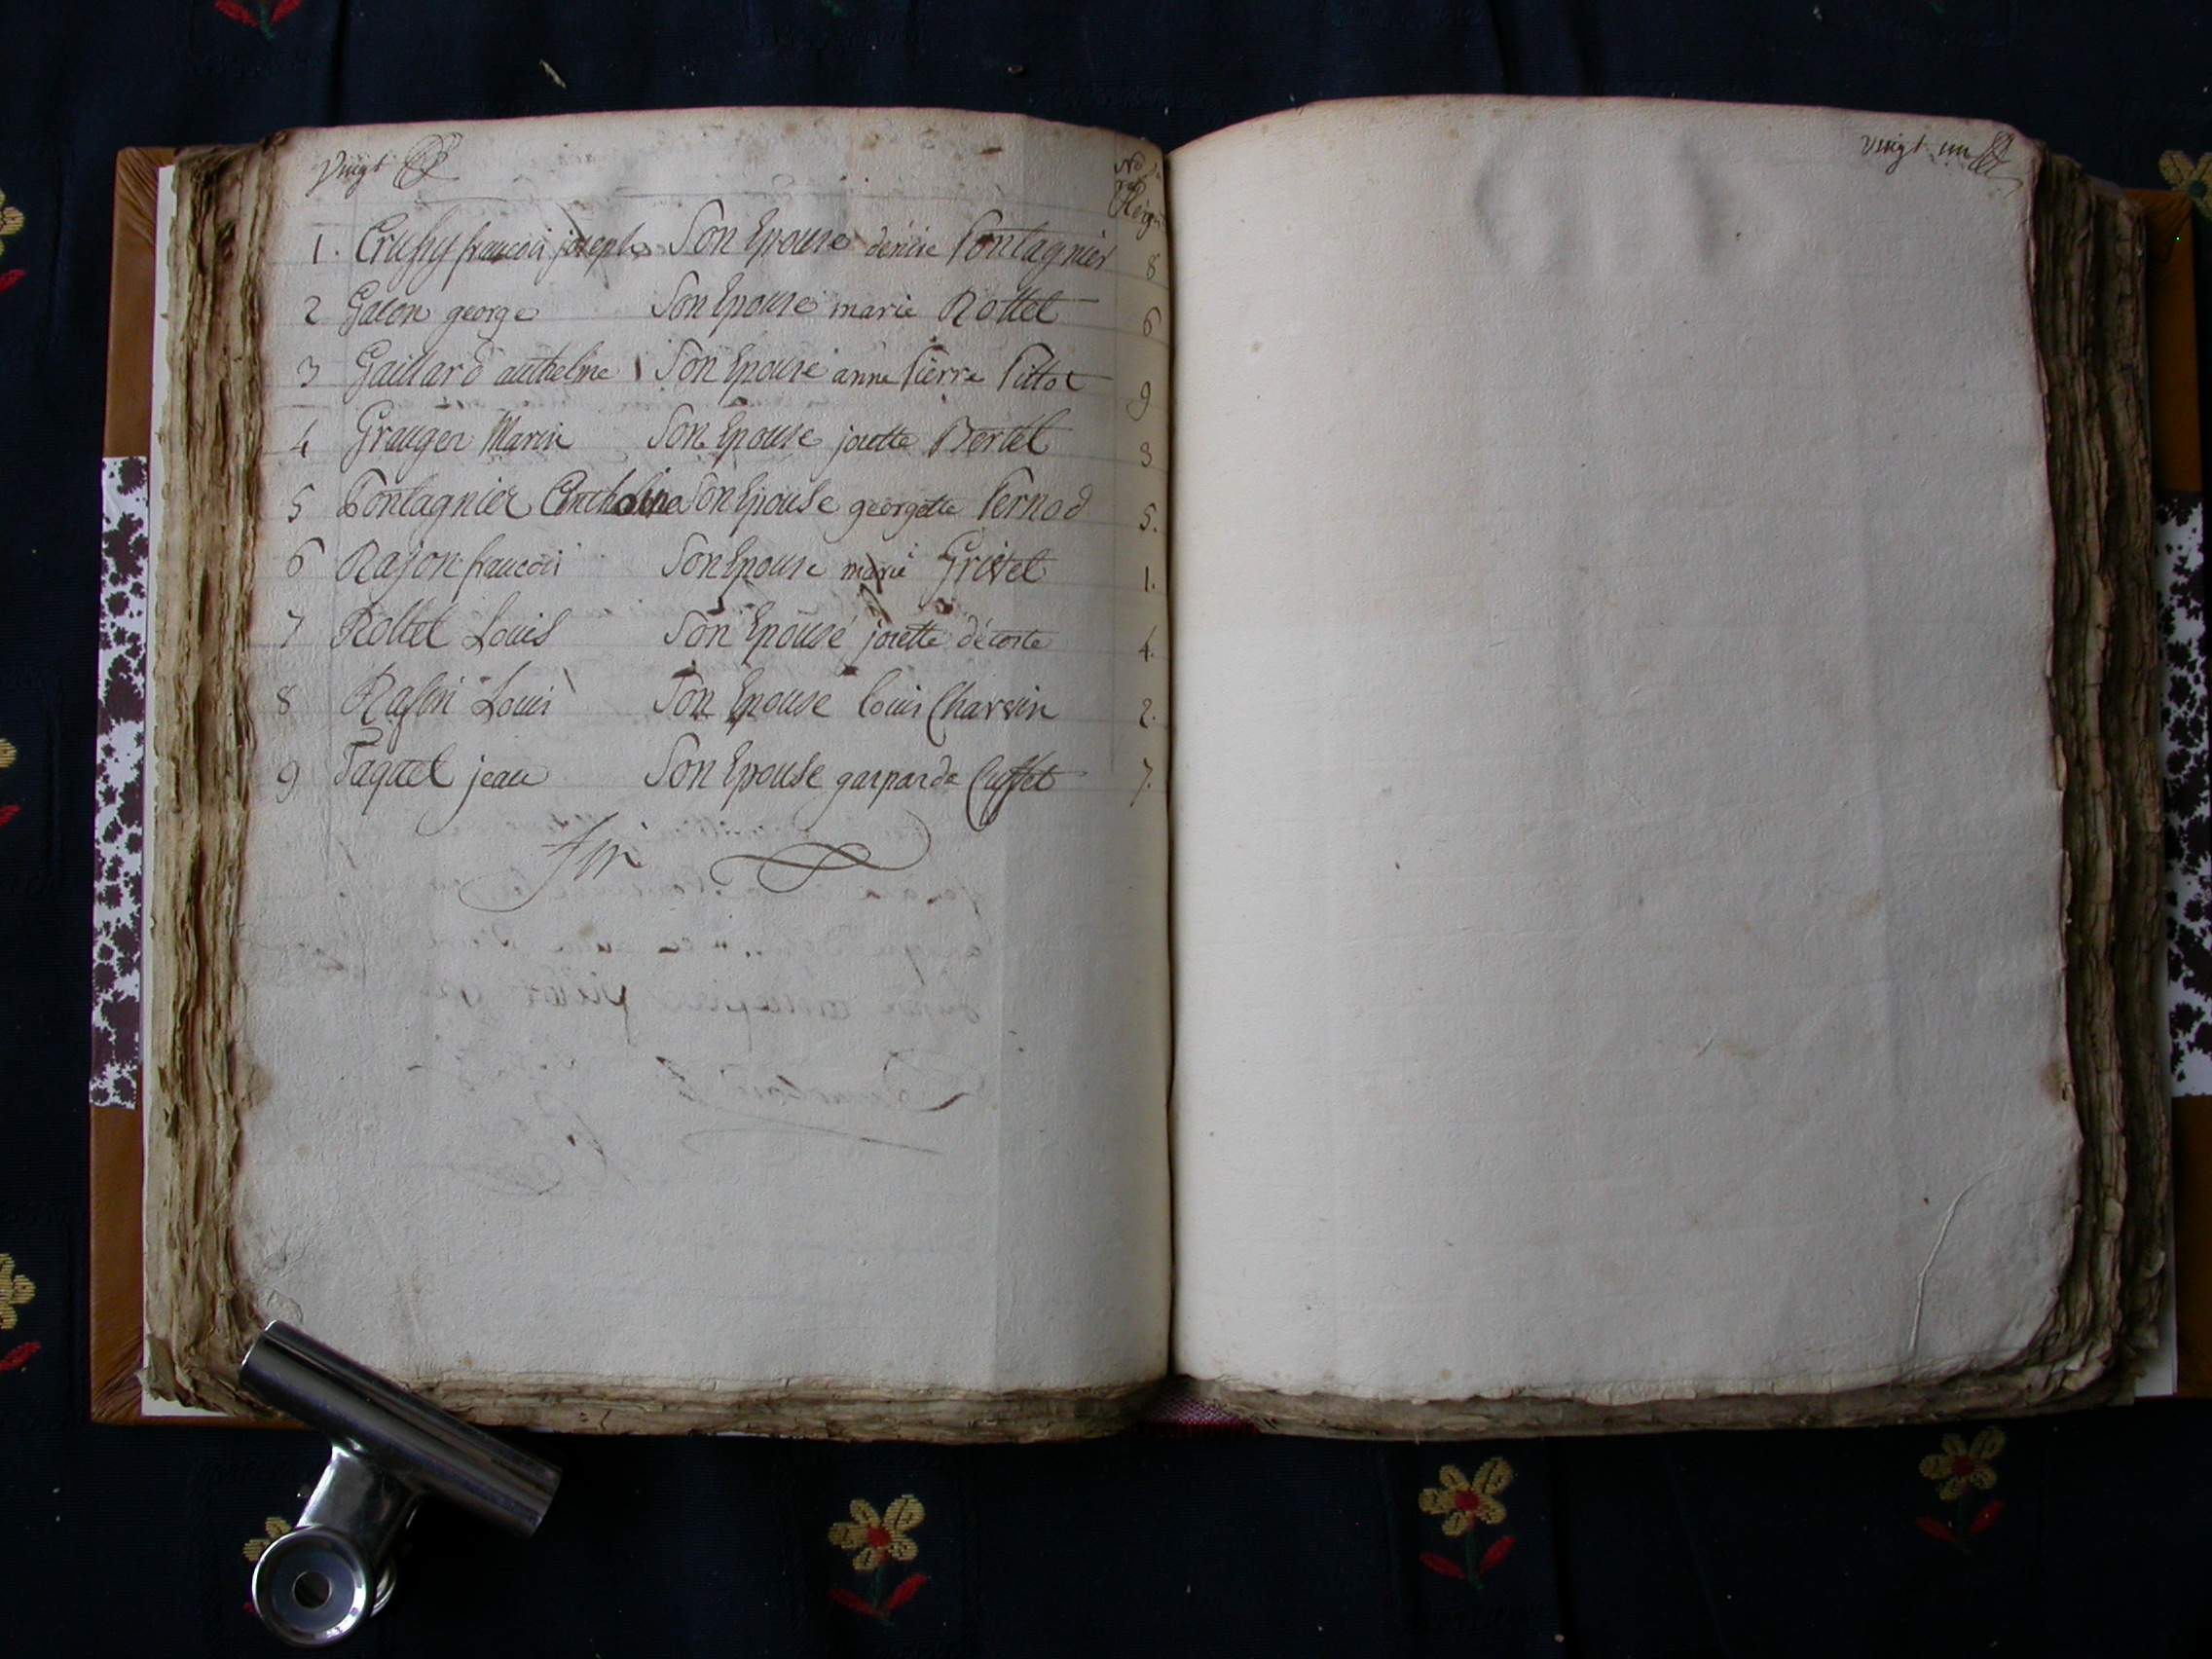 Vingt
No
Regi
1. Crussy francoi joseph Son Epouse denise Pontagnier 8
2 Galon george Son Epouse marie Rottet 6
3 Gaillard anthelme Son Epouse anne Pierre Pittot 9
4 Granger Marin Son Epouse josette Bertet 3
5 Pontagnier Son Epouse georgette Pernod 5.
6 Rajon francoi Son Epouse marie Grivet 1.
7 Rottet Louis Son Epouse josette décoste 4.
8 Louis Son Epouse Louis Charvin 2.
9 Paquet jean Son Epouse gasparde Cusset 7.
fin
Vingt un